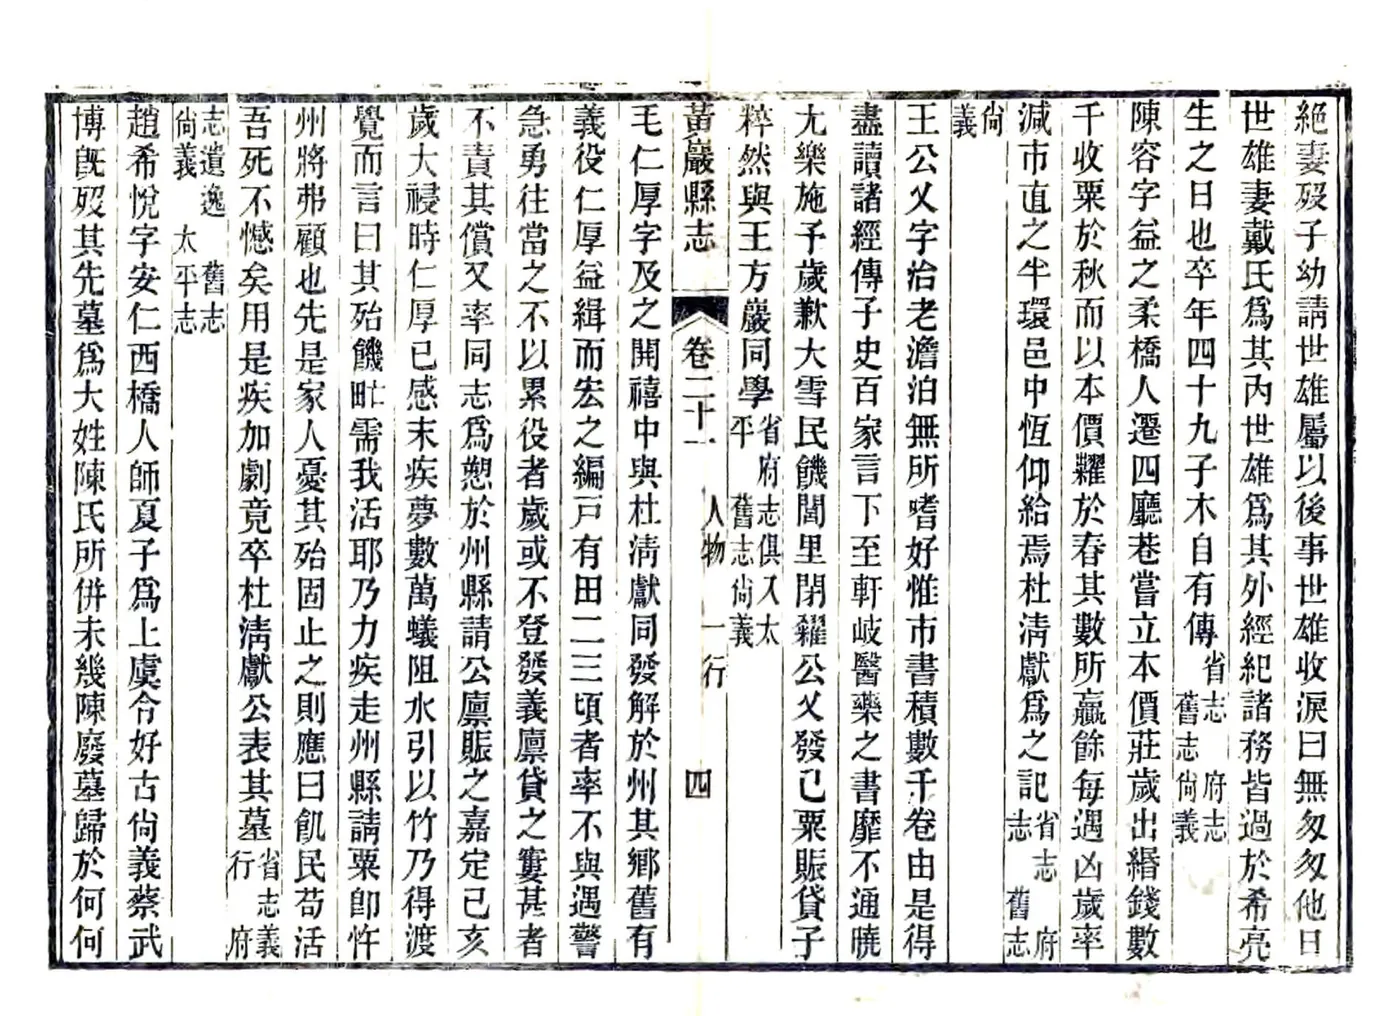 絕妻歿子幼請世雄屬以後事世雄收淚曰無匆匆他日
世雄妻戴氏爲其內世雄爲其外經紀諸務皆過於希亮
生之日也卒年四十九子木自有傳省志 府志 舊志尙義
陳容字益之柔橋人遷四廳巷嘗立本價莊歲出緡錢數
千收粟於秋而以本價糶於春其數所贏餘每遇凶歲率
減市直之半環邑中恆仰給焉杜淸獻爲之記省志 府志 舊志
尙義
王公乂字治老澹泊無所嗜好惟市書積數千卷由是得
盡讀諸經傳子史百家言下至軒岐醫藥之書靡不通曉
尤樂施予歲歉大雪民饑閭里閉糴公乂發己粟賑貸子
粹然與王方巖同學省府志俱入太平 舊志尙義
黃巖縣志 卷二十一 人物 一行 四
毛仁厚字及之開禧中與杜淸獻同發解於州其鄉舊有
義役仁厚益緝而宏之編戸有田二三頃者率不與遇警
急勇往當之不以累役者歲或不登發義廩貸之窶甚者
不責其償又率同志爲愬於州縣請公廩賑之嘉定己亥
歲大祲時仁厚已感末疾夢數萬蟻阻水引以竹乃得渡
覺而言曰其殆饑甿需我活耶乃力疾走州縣請粟卽忤
州將弗顧也先是家人憂其殆固止之則應曰飢民苟活
吾死不憾矣用是疾加劇竟卒杜淸獻公表其墓省志義行 府
志遺逸 舊志尙義 太平志
趙希悅字安仁西橋人師夏子爲上虞令好古尙義蔡武
博旣歿其先墓爲大姓陳氏所倂未幾陳廢墓歸於何何